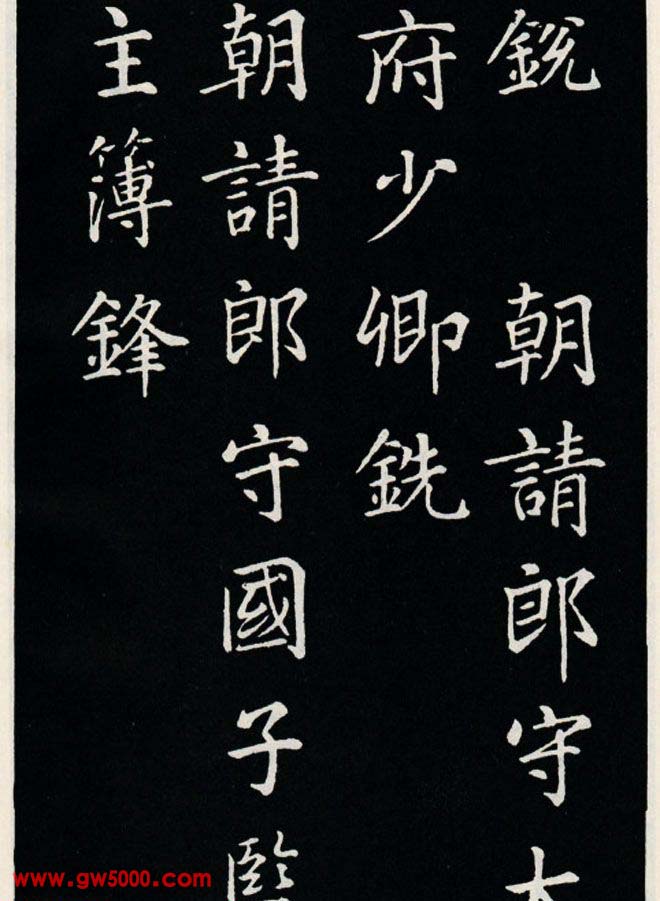 銳 朝請郎守太
府少卿銑
朝請郎守國子監
主簿鋒
www.gw5000.com